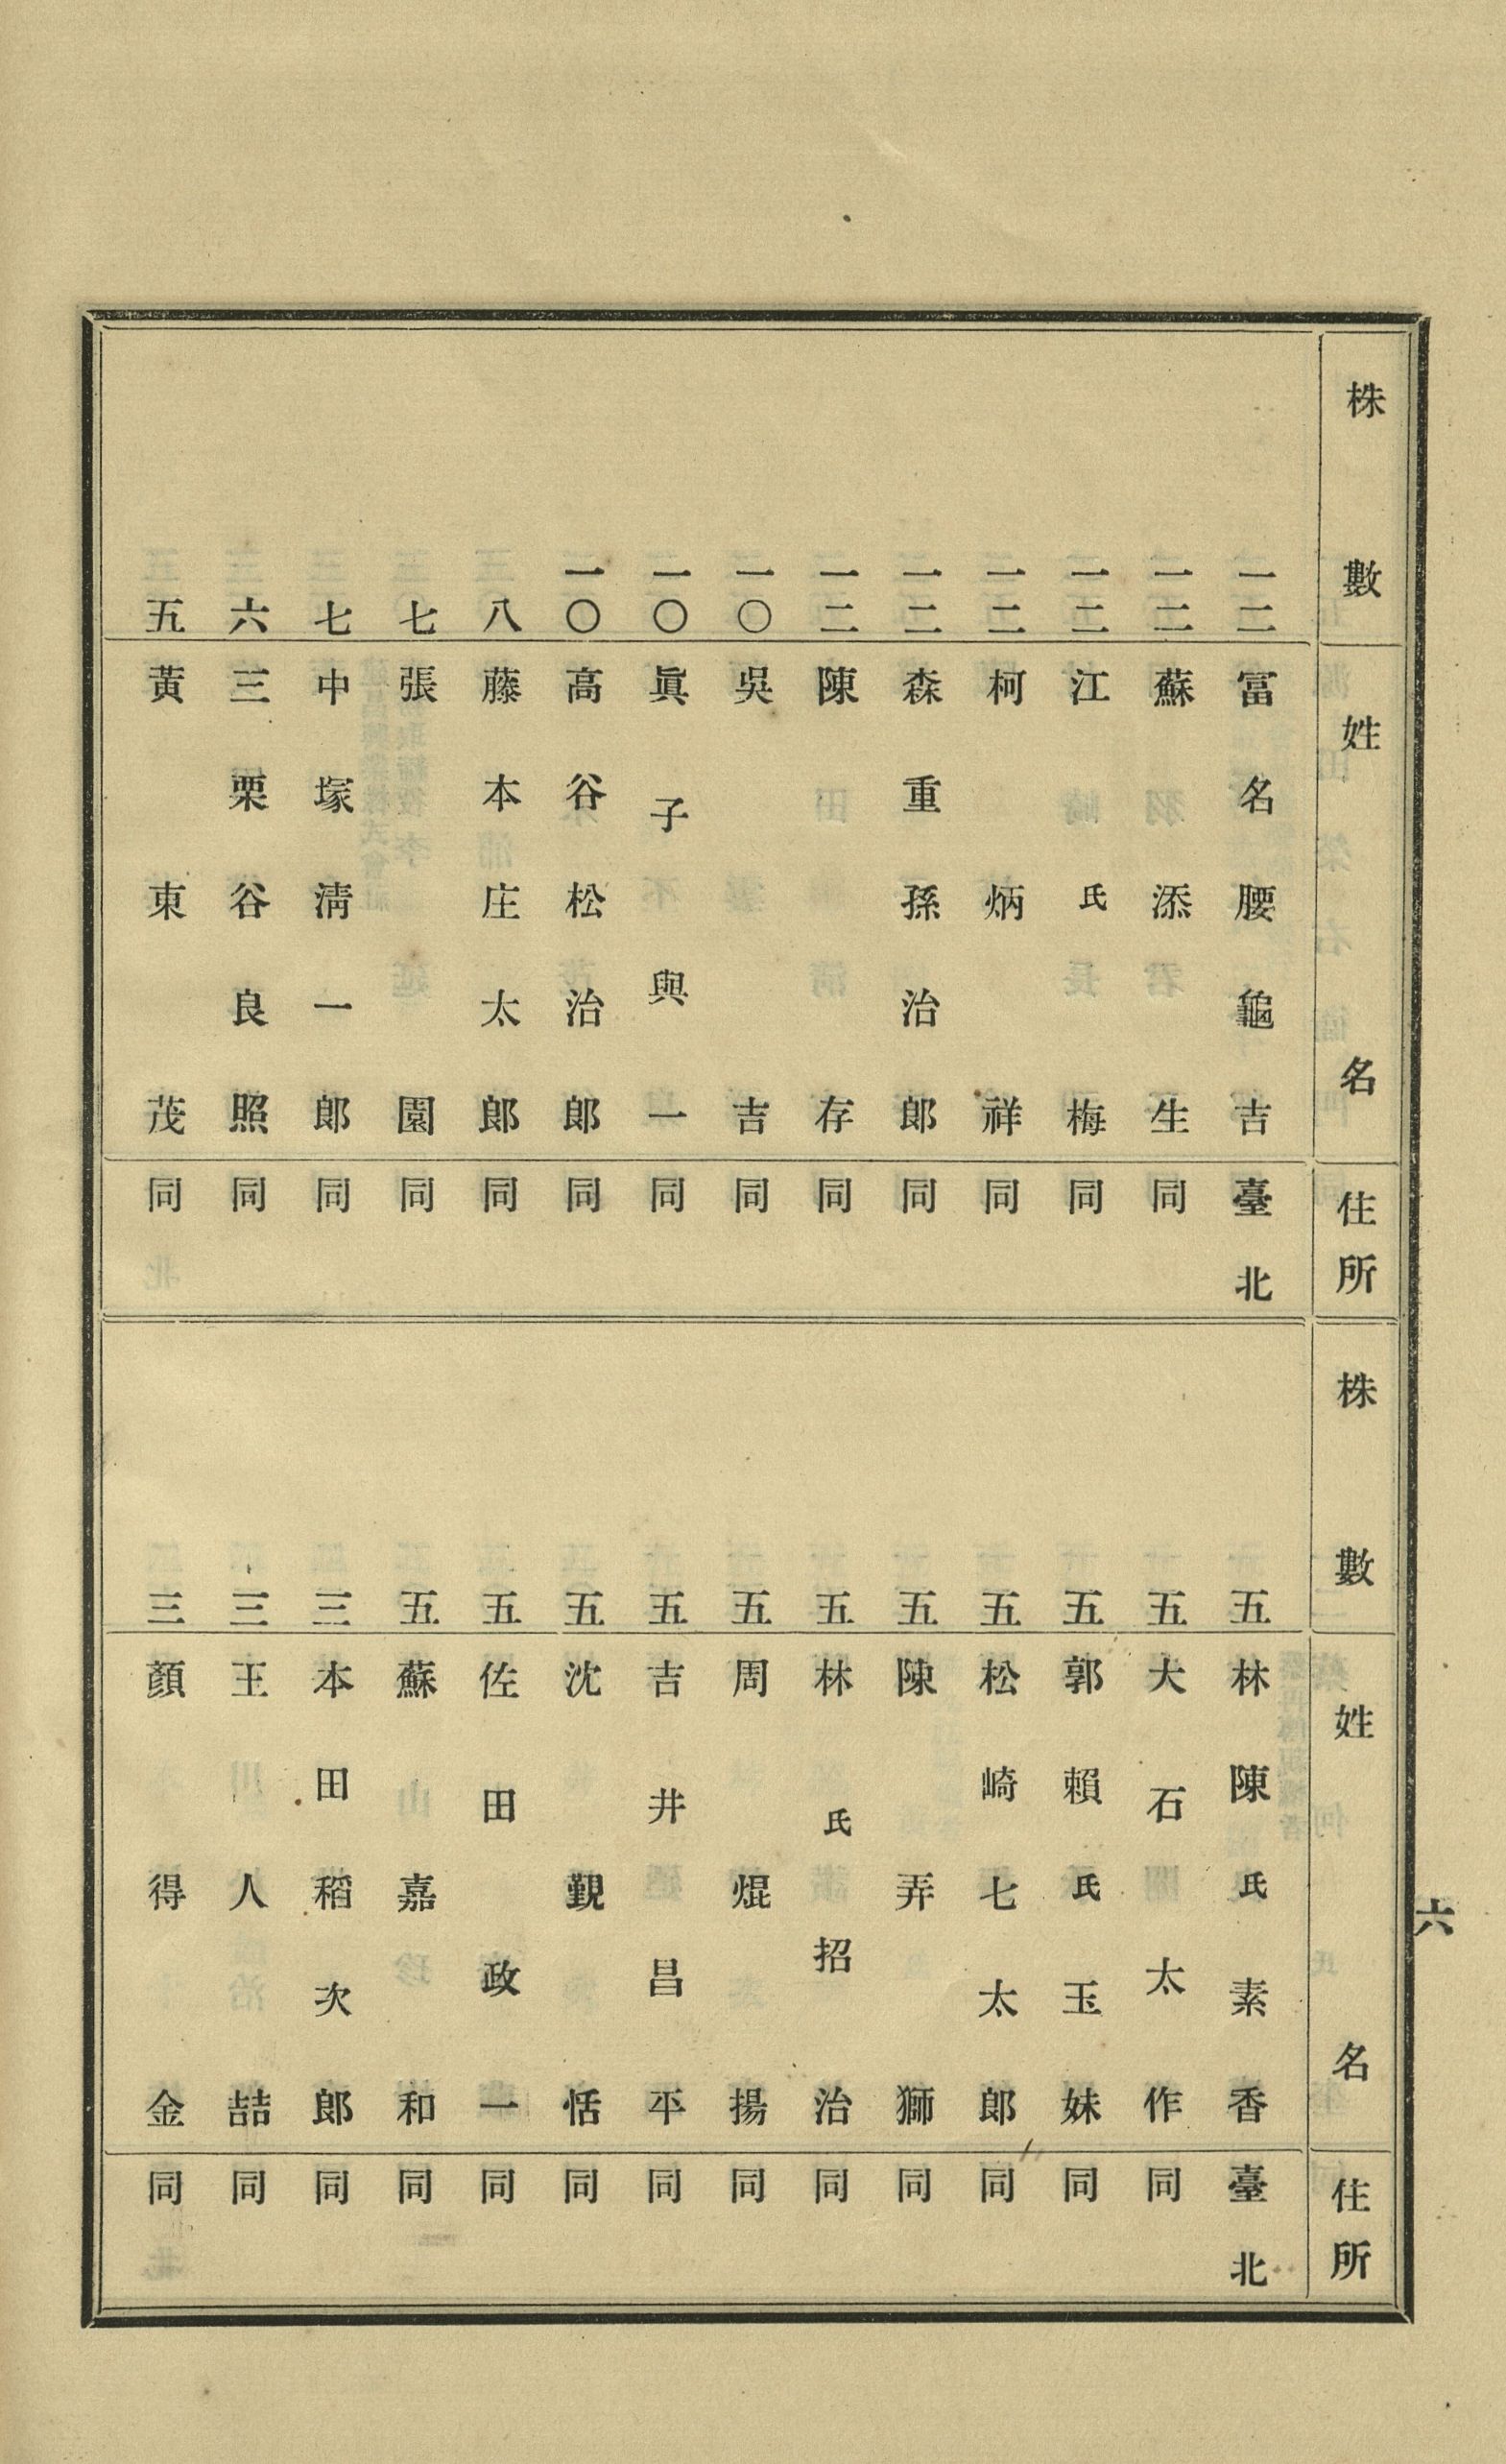 株數 姓名 住所
一二 冨名腰龜吉 臺北
一二 蘇添生 同
一二 江氏梅 同
一二 柯炳祥 同
一二 森重孫治郎 同
一二 陳存 同
一〇 吳吉 同
一〇 眞子與一 同
一〇 高谷松治郎 同
八 藤本庄太郎 同
七 張園 同
七 中塚淸一郎 同
六 三栗谷良照 同
五 黃東茂 同
株數 姓名 住所
五 林陳氏素香 臺北
五 大石太作 同
五 郭賴氏玉妹 同
五 松崎七太郎 同
五 陳弄獅 同
五 林氏招治 同
五 周焜揚 同
五 吉井昌平 同
五 沈覲恬 同
五 佐田政一 同
五 蘇嘉和 同
三 本田稻次郎 同
三 王人喆 同
三 顏得金 同
六